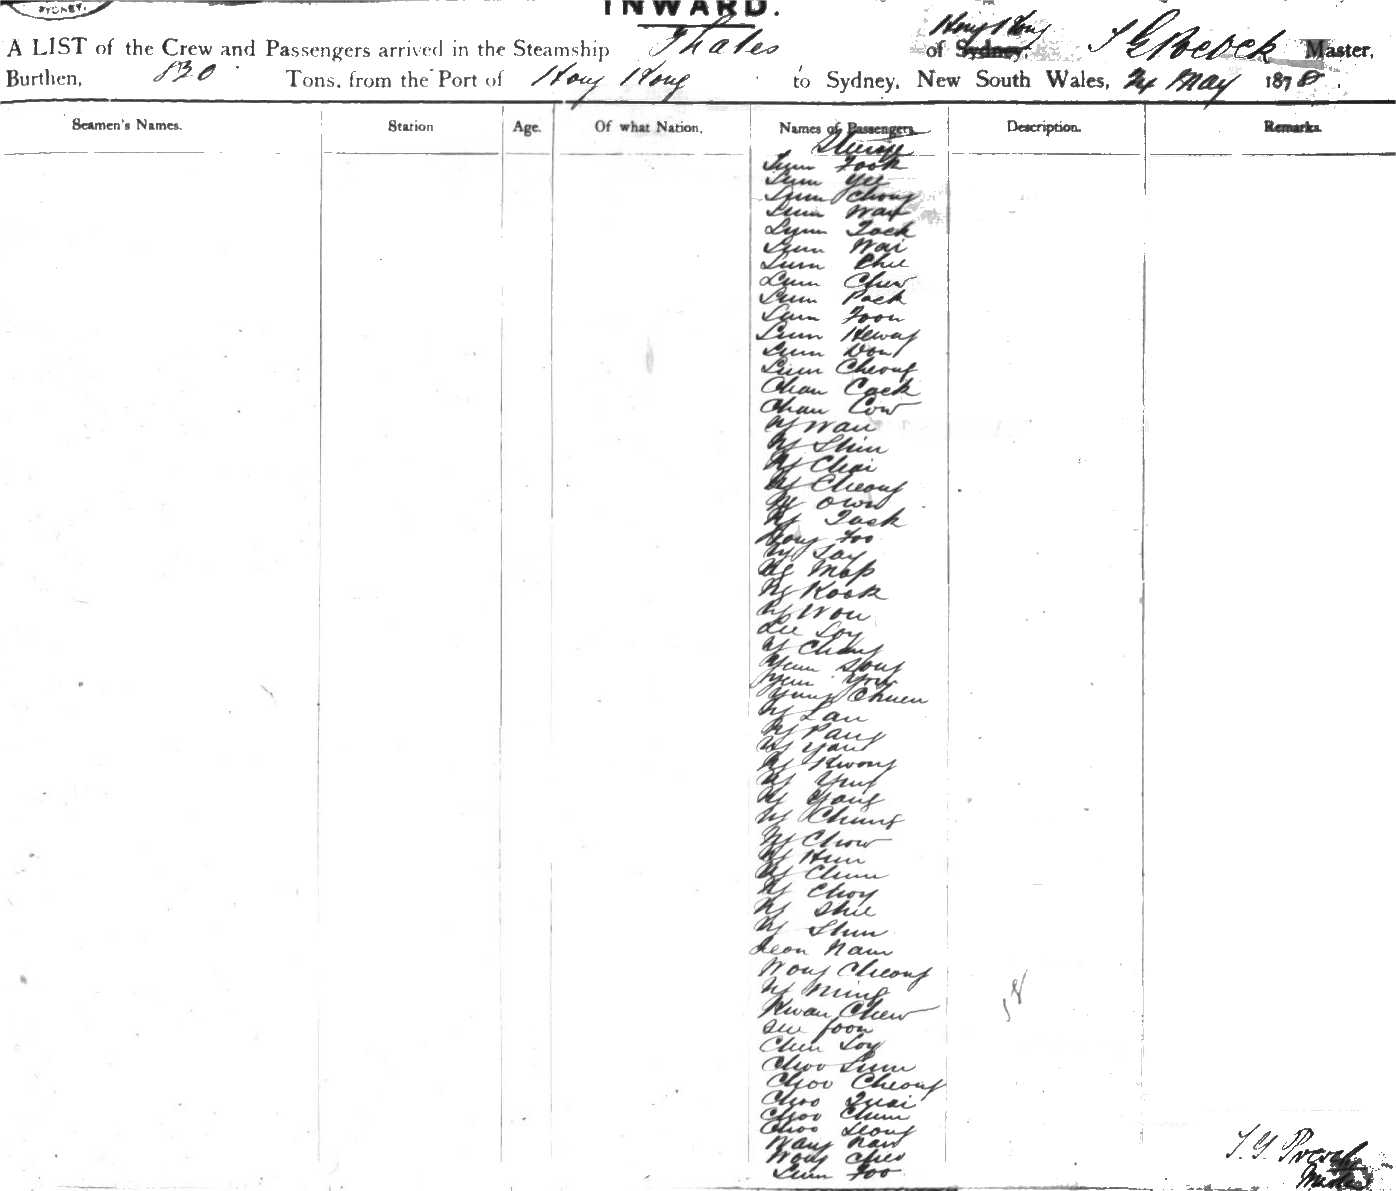 SYDNEY.
INWARD.
A LIST of the Crew and Passengers arrived in the Steamship Thales of Sydney Hong Kong Pocock Master,
Burthen, 830 Tons, from the Port of Hong Kong to Sydney, New South Wales, 24 May 1878.
Seamen's Names. Station Age. Of what Nation. Names of Passengers. Description. Remarks.
Lum Fook
Lum Yee
Lum Chong
Lum Wah
Lum Tack
Lum Wai
Lum Chee
Lum Chew
Lum Pack
Lum Foon
Lum
Lum
Lum Cheong
Chan Cack
Chan Cow
Ng Wan
Ng Shin
Ng Chai
Ng Cheong
Ng Own
Ng Tack
Foo
Ng Tay
Ng Mop
Ng Kook
Ng Won
Lee Loy
Ng Chang
Yum
Yum
Yung Chuen
Ng Lau
Ng Pang
Ng
Ng Kwong
Ng Ying
Ng Yang
Ng Chung
Ng Chow
Ng Hun
Ng Chun
Ng Choy
Ng Shee
Ng Shun
Leon Nam
Wong Cheong
Ng Ming
Kwan Chew
See Foon
Chin Loy
Choo Lum
Choo Cheong
Choo
Choo Chun
Choo Leong
Wang
Wong Chee
Lum Foo
58
Pocock
Master